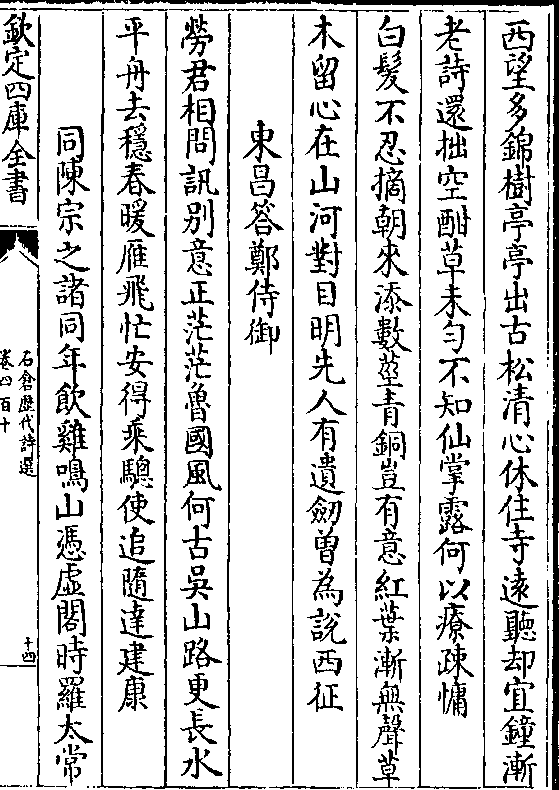 西望多錦樹亭亭出古松清心休住寺遠聽却宜鐘漸
老詩還拙空酣草未勻不知仙掌露何以療疎慵
白髮不忍摘朝來添數莖青銅豈有意紅葉漸無聲草
木留心在山河對目明先人有遺劒曽為說西征
東昌答鄭侍御
勞君相問訊别意正茫茫魯國風何古吳山路更長水
平舟去穩春暖雁飛忙安得乘驄使追隨達建康
同陳宗之諸同年飲雞鳴山憑虛閣時羅太常
欽定四庫全書
石倉歴代詩選
卷四百十
十四